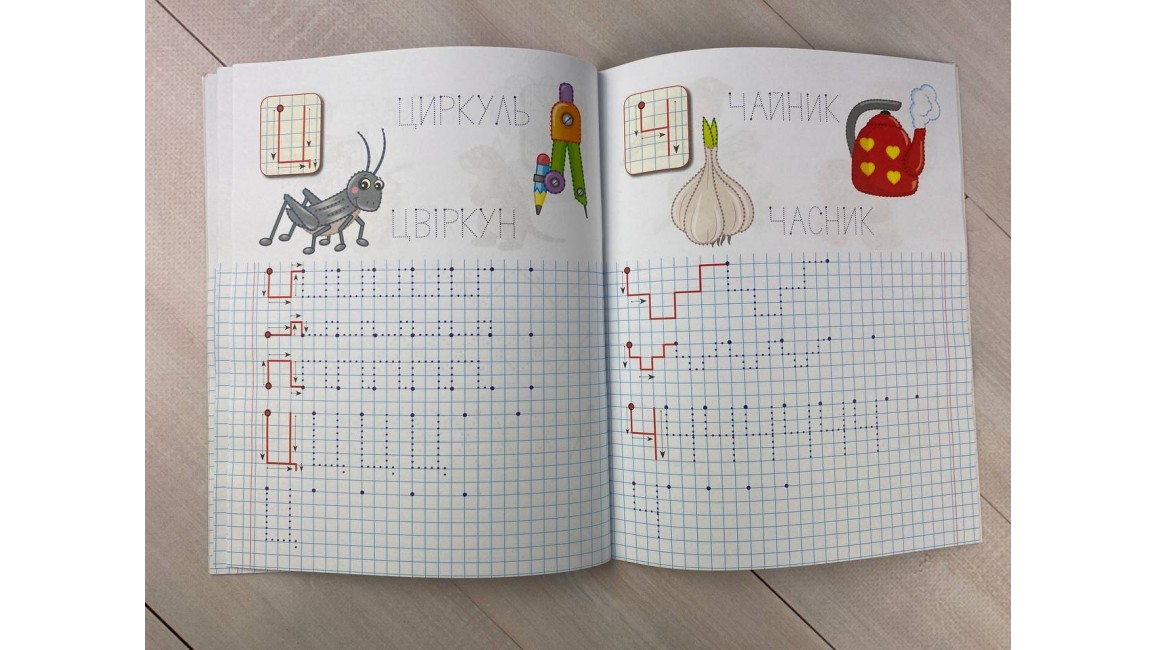 Ц
ЦИРКУЛЬ
ЦВІРКУН
Ц Ц Ц Ц
Ц
Ч
ЧАЙНИК
ЧАСНИК
Ч Ч Ч Ч Ч Ч
Ч